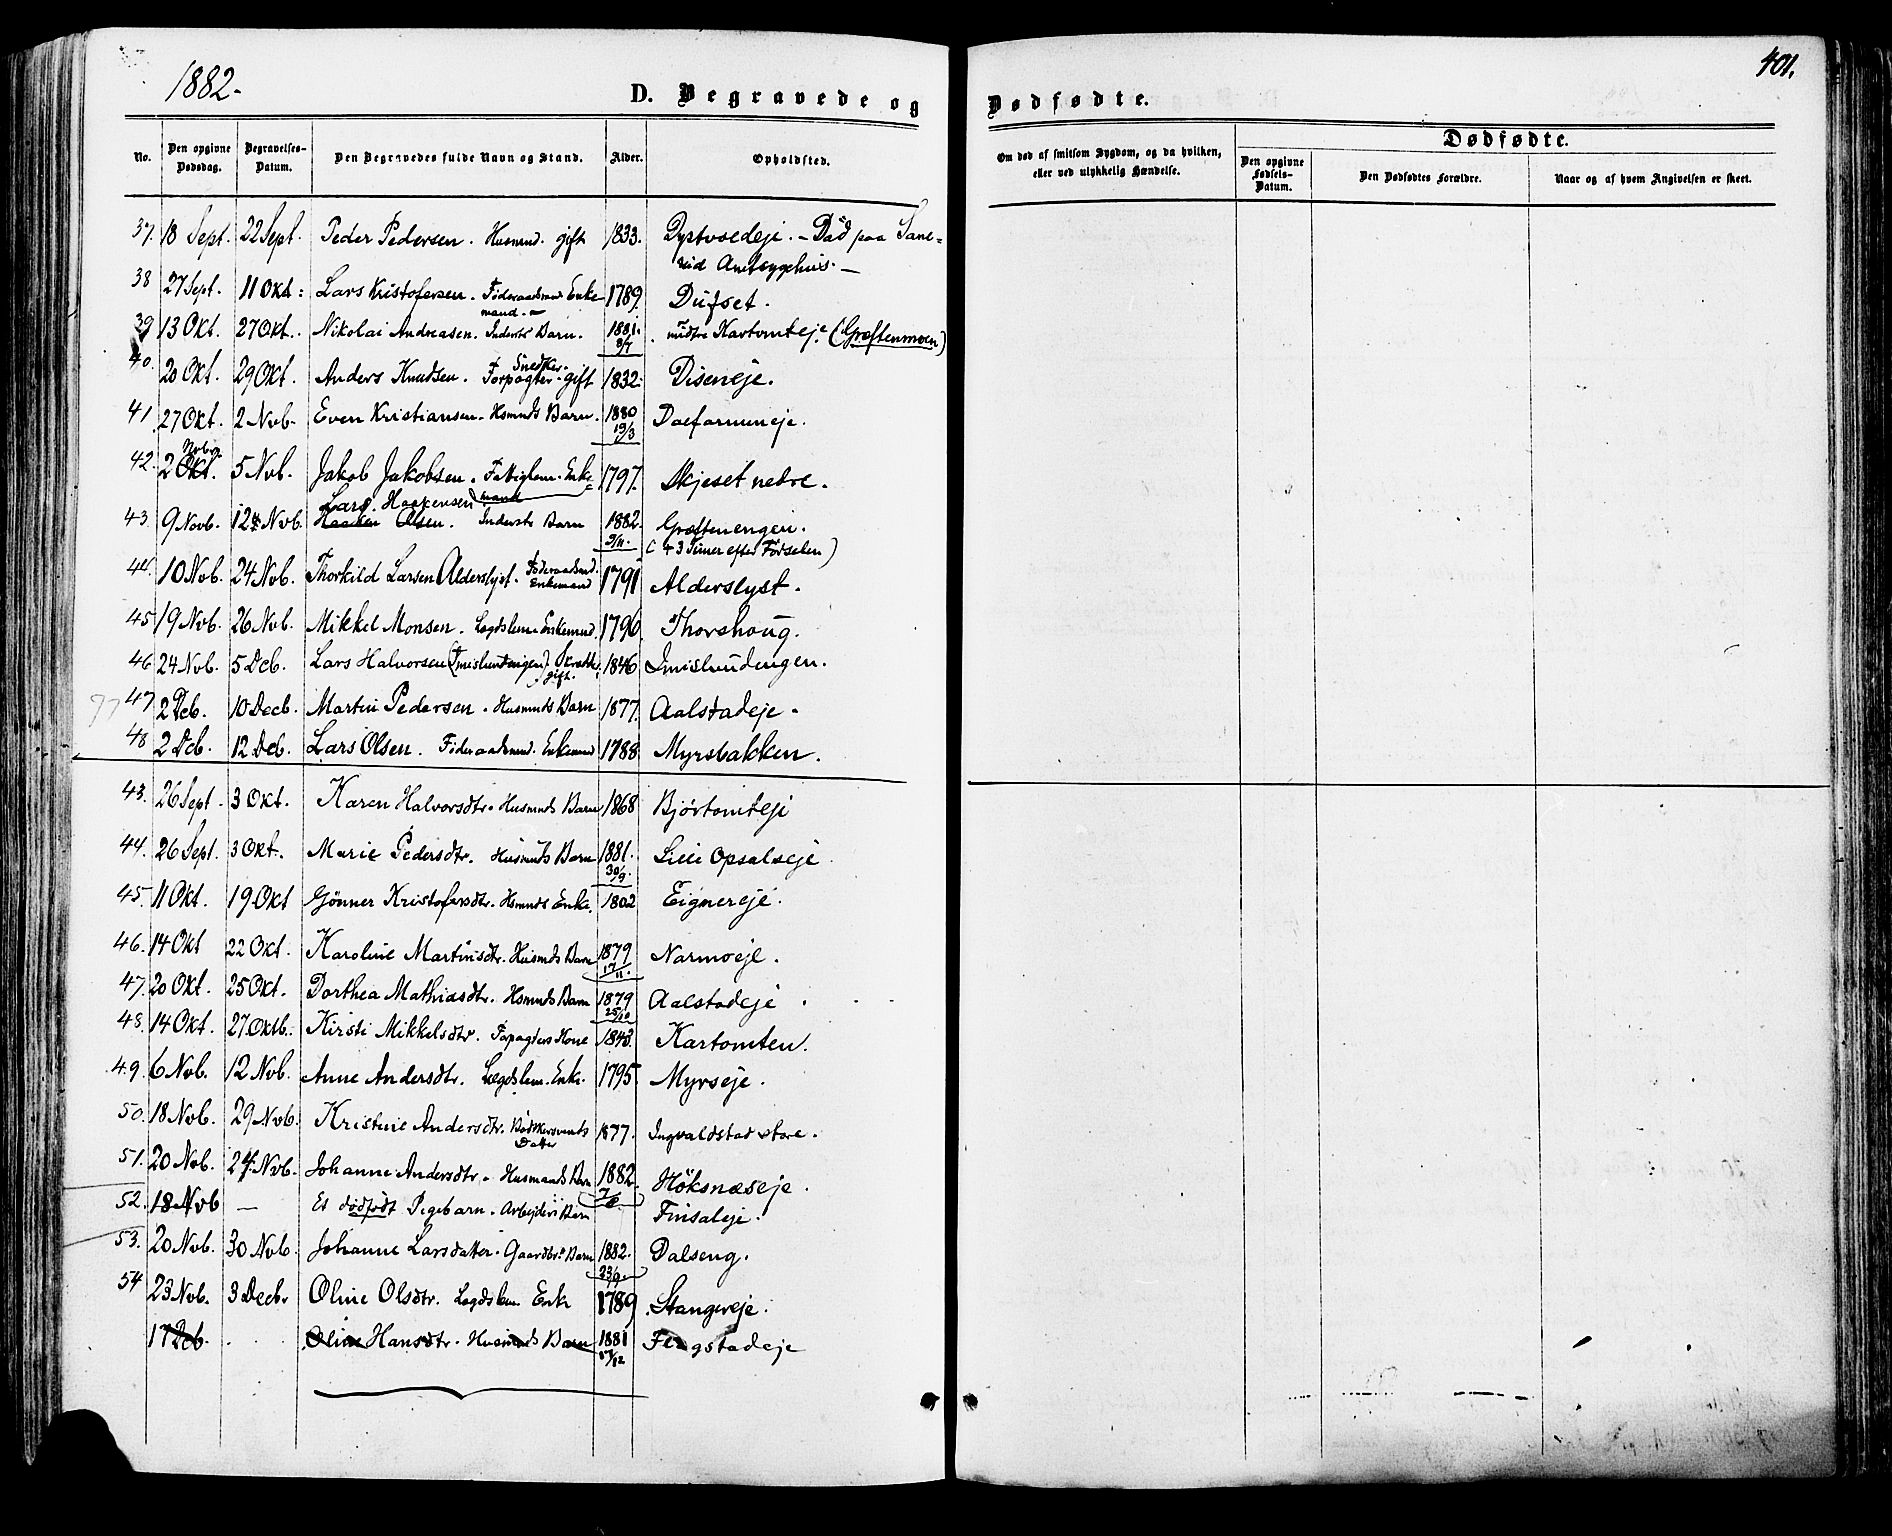 1882.
401.
D. Begravede og Dødfødte.
No. Den opgivne Dødsdag. Begravelses-Datum. Den Begravedes fulde Navn og Stand. Alder. Opholdsted. Om død af smitsom Sygdom, og da hvilken, eller ved ulykkelig Hændelse.
Dødfødte.
Den opgivne Fødsels-Datum. Den Dødfødtes Forældre. Naar og af hvem Angivelsen er skeet.
37. 18 Sept. 22 Sept. Peder Pedersen. Husmd. gift 1833. Død paa Sane-
vid Amtsygehus. —
38 27 Sept. 11 Okt: Lars Kristofersen. Føderaadsmd Enke- 1789. Dufset.
mand.
39 13 Okt. 27 Okt. Nikolai Andreasen. Inderst Barn. 1881. Kartomteje. (Græftenmoen)
8/7
40. 20 Okt. 29 Okt. Anders Knudsen. Snedker. Forpagter gift 1832. Diseneje.
41. 27 Okt. 2 Nob. Even Kristiansen. Hsmds Barn. 1880
19/3
42. 2 Okt. Nobr. 5 Nob. Jakob Jakobsen. Fattiglem. Enke- 1797. Skjeset nedre.
mand
Lars Haakensen
43. 9 Novb. 12 Nvb. Haaken Olsen. Inderst Barn 1882. Græftenengen.
9/11. (43 Timer efter Fødselen)
44. 10 Nob. 24 Nob. Thorkild Larsen Alderslyst. Føderaadsmd. Enkemand 1791 Alderslyst.
45 19 Nob. 26 Nob. Mikkel Monsen. Lægdslem Enkemd. 1796. Thorshoug.
46 24 Nob. 5 Dcb. Lars Halvorsen (Imislundengen) gift. 1846 Imislundengen.
47 2 Dcb. 10 Decb. Martin Pedersen. Husmds Barn 1877. Aalstadeje.
48 2 Dcb. 12 Dcb. Lars Olsen. Føderaadsmd. Enkemd 1788 Myrsbakken.
43. 26 Sept. 3 Okt. Karen Halvorsdtr. Husmds Barn 1868 Bjørtomteje
44. 26 Sept. 3 Okt. Marie Pedersdtr. Husmds Barn 1881. Lille Opsalseje.
30/9.
45. 11 Okt. 19 Okt Gønner Kristofersdtr. Hsmds Enke. 1802 Eignereje.
46. 14 Okt 22 Okt. Karoline Martinsdtr. Husmds Barn 1879 Narmoeje.
17/11.
47. 20 Okt. 25 Okt. Dorthea Mathiasdtr. Hsmds Barn 1879 Aalstadeje.
25/10
48. 14 Okt. 27 Oktb. Kirsti Mikkelsdtr. Fopagters Kone 1843. Kartomten.
49. 6 Nob. 12 Nob. Anne Andersdtr. Lægdslem. Enke. 1795. Myrseje.
50. 18 Nvb. 29 Nvb. Kristine Andersdtr. Bødkersvends Datter 1877. Ingvaldstad store.
51. 20 Nob. 24 Nvb. Johanne Andersdtr. Husmands Barn 1882. Höksnæseje.
52. 18 Nvb — Et dødfødt Pigebarn. Arbejders Barn Finsaleje.
53. 20 Nvb. 30 Nvb. Johanne Larsdatter. Gaardbr. Barn 1882. Dalseng.
23/9.
54 23 Nob. 3 Decb. Oline Olsdtr. Lægdslem Enke 1789. Stangereje.
17 Dcb. Oline Hansdtr. Husmds Barn 1881 Flagstadeje
17/12